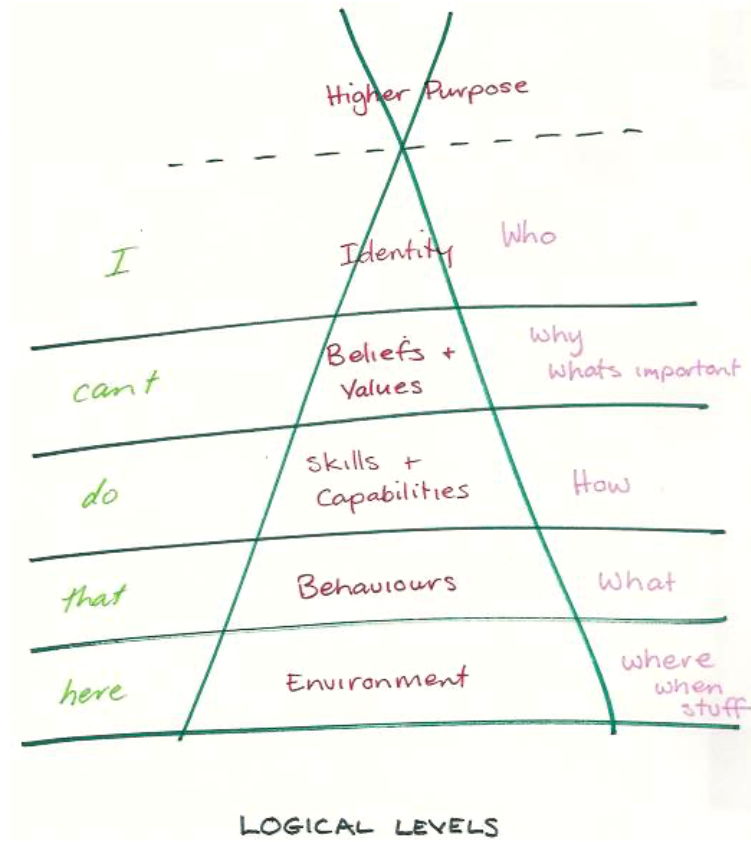 Higher Purpose
I Identity Who
can't Beliefs + Why
Values whats important
do Skills +
Capabilities How
that Behaviours What
here Environment where
when
stuff
LOGICAL LEVELS